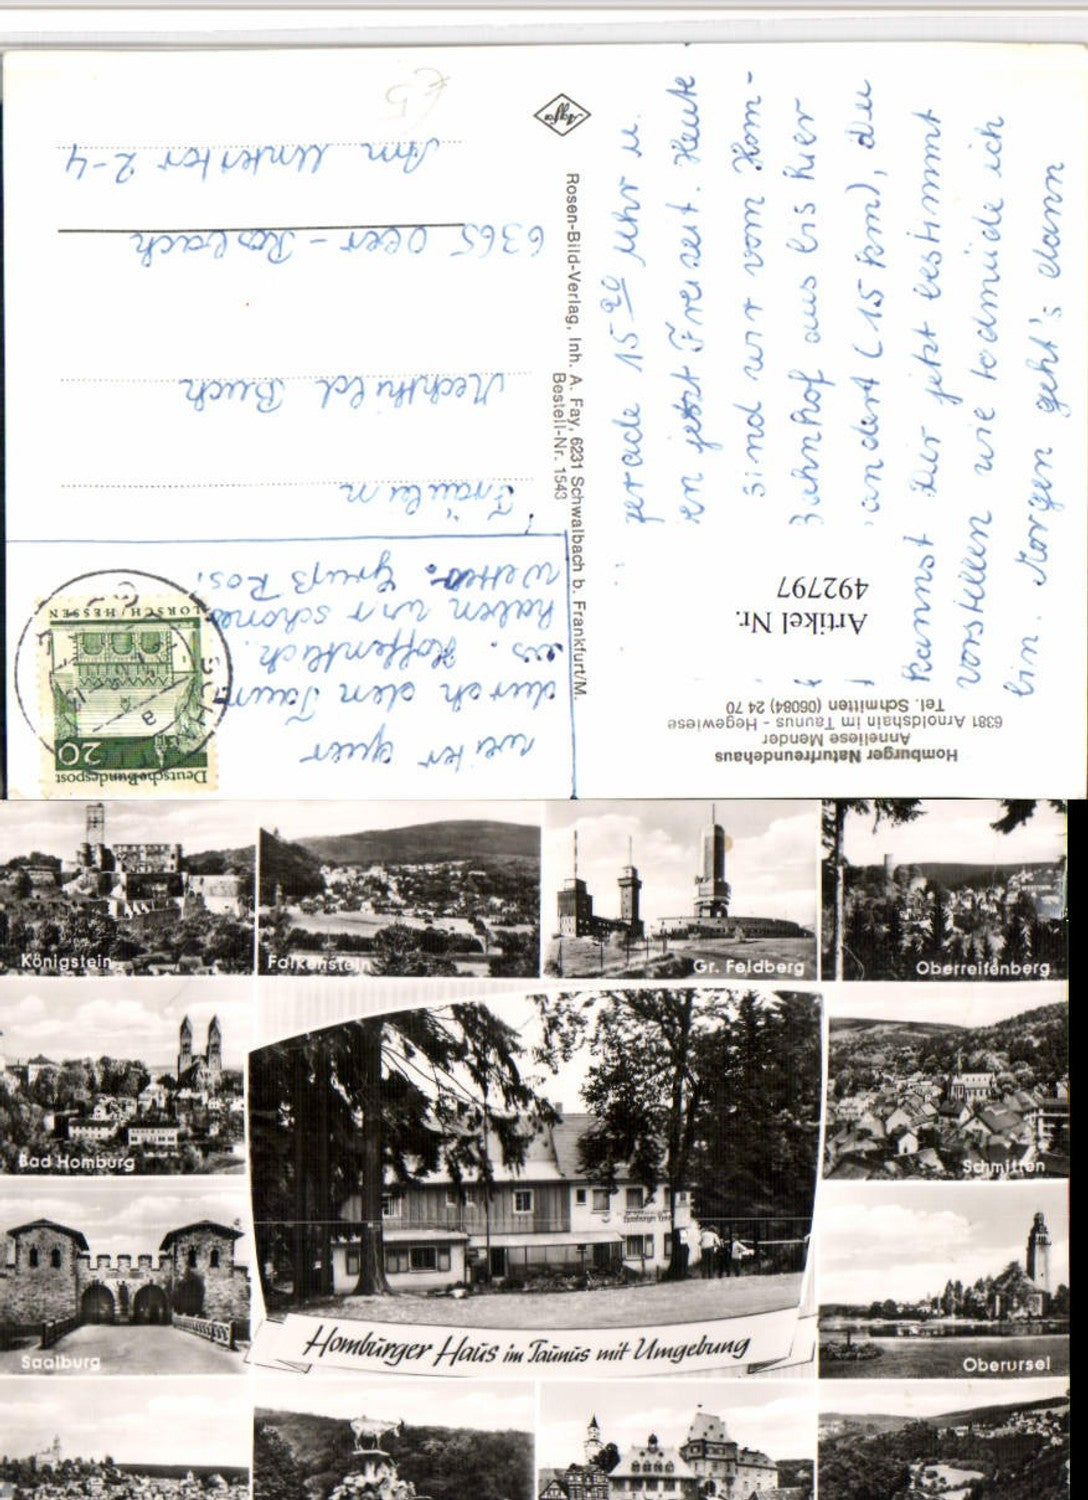 gerade 15 20 Uhr u.
en jetzt Freizeit. Heute
sind wir vom Hom-
Bahnhof aus bis hier
andert (15 km), du
kannst Dir jetzt bestimmt
vorstellen wie todmüde ich
bin. Morgen geht's dann
weiter quer
durch den Taunus
es. Hoffentlich
haben wir schönes
Wetter. Gruß Ros.
Fräulein
Mechthild Buch
6365 Ober-Rosbach
Am Unkstor 2-4
€5
Agfa
Rosen-Bild-Verlag, Inh. A. Fay, 6231 Schwalbach b. Frankfurt/M.
Bestell-Nr. 1543
Homburger Naturfreundehaus
Anneliese Mender
6381 Arnoldshain im Taunus - Hegewiese
Tel. Schmitten (06084) 24 70
Artikel Nr.
492797
Deutsche Bundespost
20
LORSCH/HESSEN
Königstein
Falkenstein
Gr. Feldberg
Oberreifenberg
Bad Homburg
Schmitten
Homburger Haus
Saalburg
Homburger Haus im Taunus mit Umgebung
Oberursel